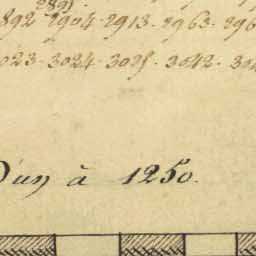 2891
2892 2904 · 2913 · 2963 · 296
3023 · 3024 · 3025 · 3042 · 304
D'un à 1250.